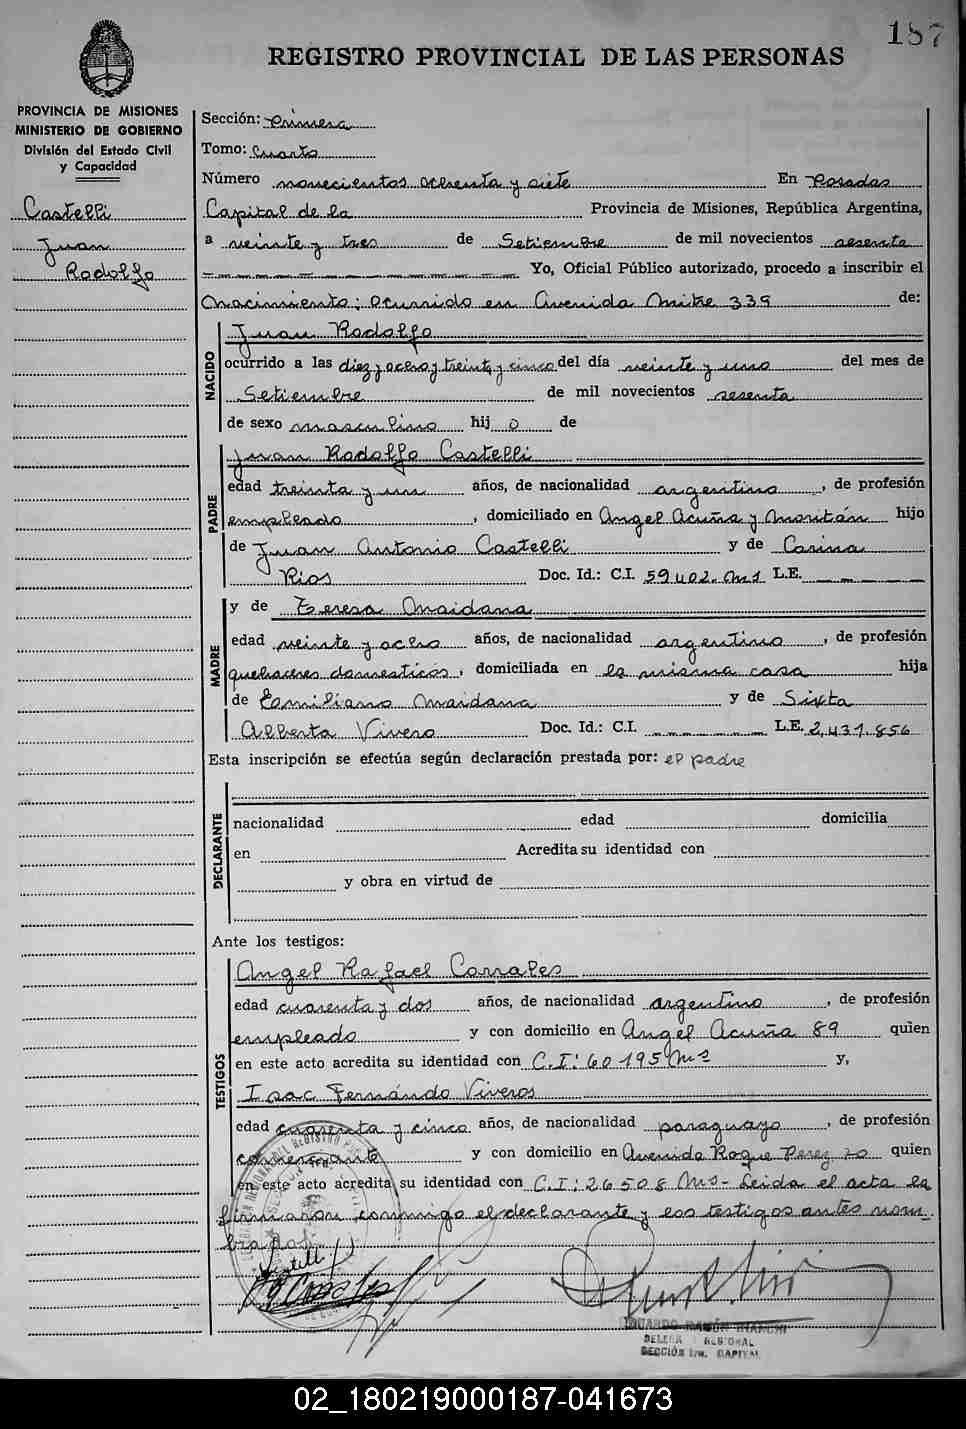 187
REGISTRO PROVINCIAL DE LAS PERSONAS
PROVINCIA DE MISIONES
MINISTERIO DE GOBIERNO
División del Estado Civil
y Capacidad
Castelli
Juan
Rodolfo
Sección: Primera
Tomo: Cuarto
Número novecientos ochenta y siete En Posadas
Capital de la Provincia de Misiones, República Argentina,
a veinte y tres de Setiembre de mil novecientos sesenta
Yo, Oficial Público autorizado, procedo a inscribir el
Nacimiento; ocurrido en Avenida Mitre 339 de:
NACIDO
Juan Rodolfo
ocurrido a las diez y ocho y treinta y cinco del día veinte y uno del mes de
Setiembre de mil novecientos sesenta
de sexo masculino hij o de
PADRE
Juan Rodolfo Castelli
edad treinta y un años, de nacionalidad argentino, de profesión
empleado, domiciliado en Angel Acuña y Moritán hijo
de Juan Antonio Castelli y de Carina
Rios Doc. Id.: C.I. 59402. Ms L.E.
MADRE
y de Teresa Maidana
edad veinte y ocho años, de nacionalidad argentino, de profesión
quehaceres domesticos, domiciliada en la misma casa hija
de Emiliano Maidana y de Sixta
Alberta Vivero Doc. Id.: C.I. L.E. 2,431.856
Esta inscripción se efectúa según declaración prestada por: el padre
DECLARANTE
nacionalidad edad domicilia
en Acredita su identidad con
y obra en virtud de
Ante los testigos:
TESTIGOS
Angel Rafael Corrales
edad cuarenta y dos años, de nacionalidad argentino, de profesión
empleado y con domicilio en Angel Acuña 89 quien
en este acto acredita su identidad con C.I: 60195 Ms y,
Isac Fernándo Viveros
edad cuarenta y cinco años, de nacionalidad paraguayo, de profesión
comerciante y con domicilio en Avenida Roque Perez 20 quien
en este acto acredita su identidad con C.I: 26508 Ms- Leida el acta la
firmaron conmigo el declarante y los testigos antes nom-
brados.
EDUARDO RAMÓN BIANCHI
REGIONAL
SECCIÓN 1ra. CAPITAL
02_180219000187-041673